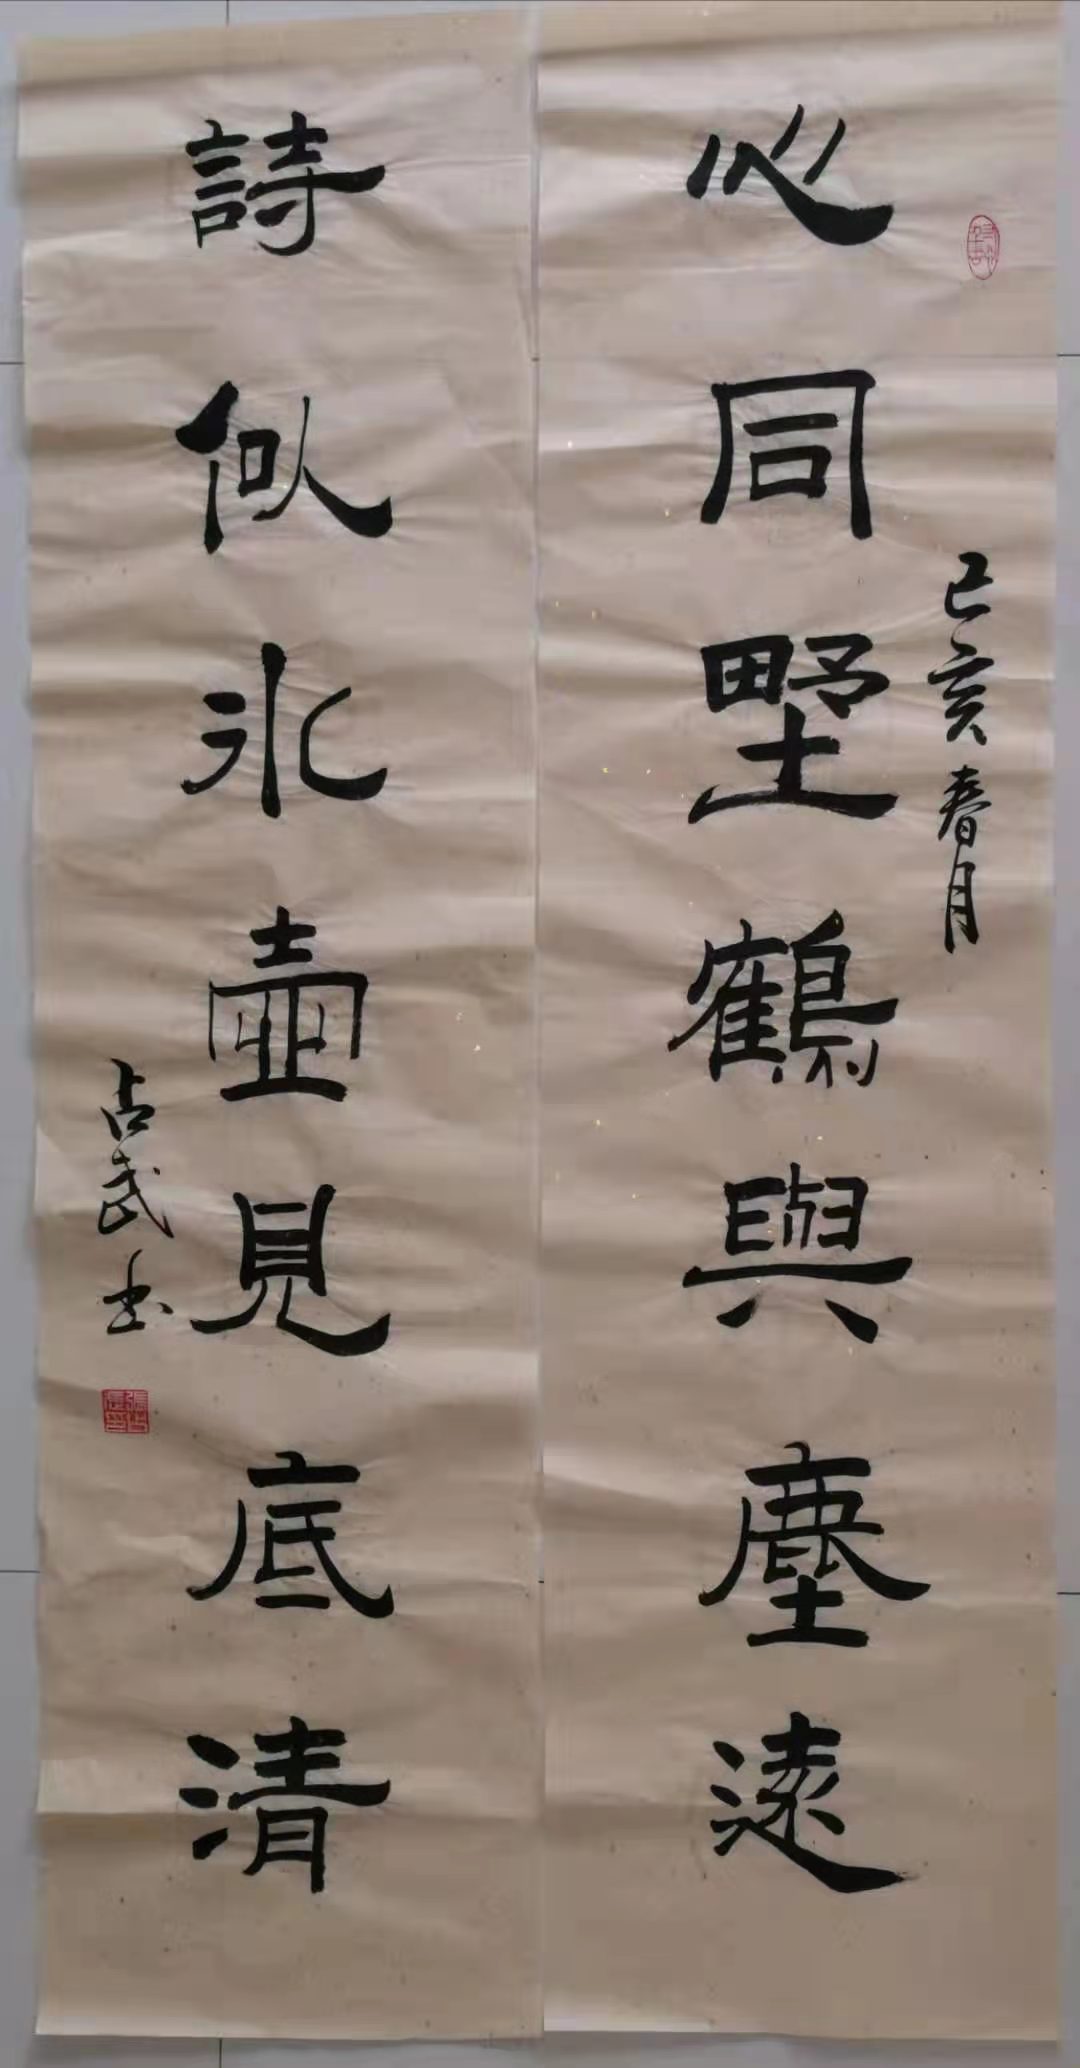 心同墅鶴與塵遠
己亥春月
詩似冰壺見底清
占武书